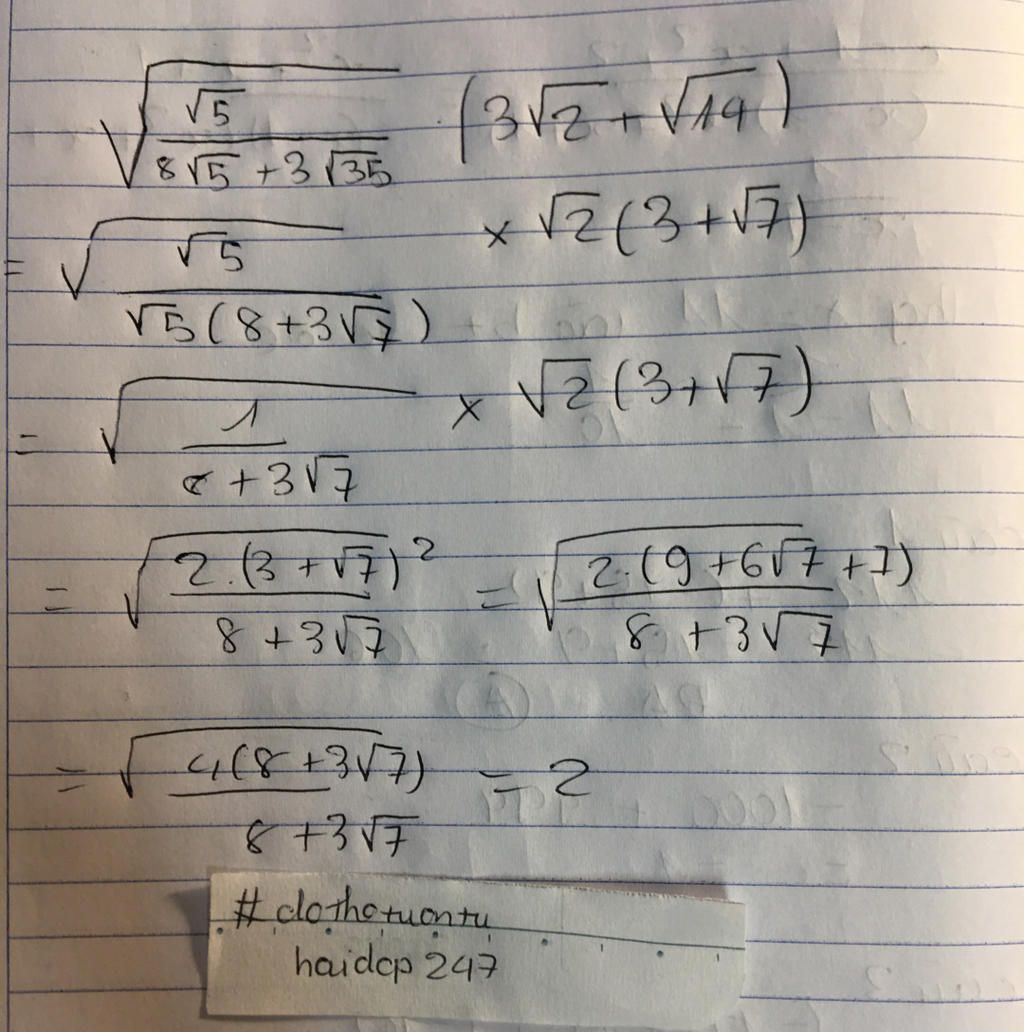 √(√5 / (8√5 + 3√35)) · (3√2 + √14)
= √(√5 / (√5(8+3√7))) × √2(3+√7)
= √(1 / (8+3√7)) × √2(3+√7)
= √(2.(3+√7)² / (8+3√7)) = √(2.(9+6√7+7) / (8+3√7))
= √(4(8+3√7) / (8+3√7)) = 2
# dothotuontu
haidcp 247